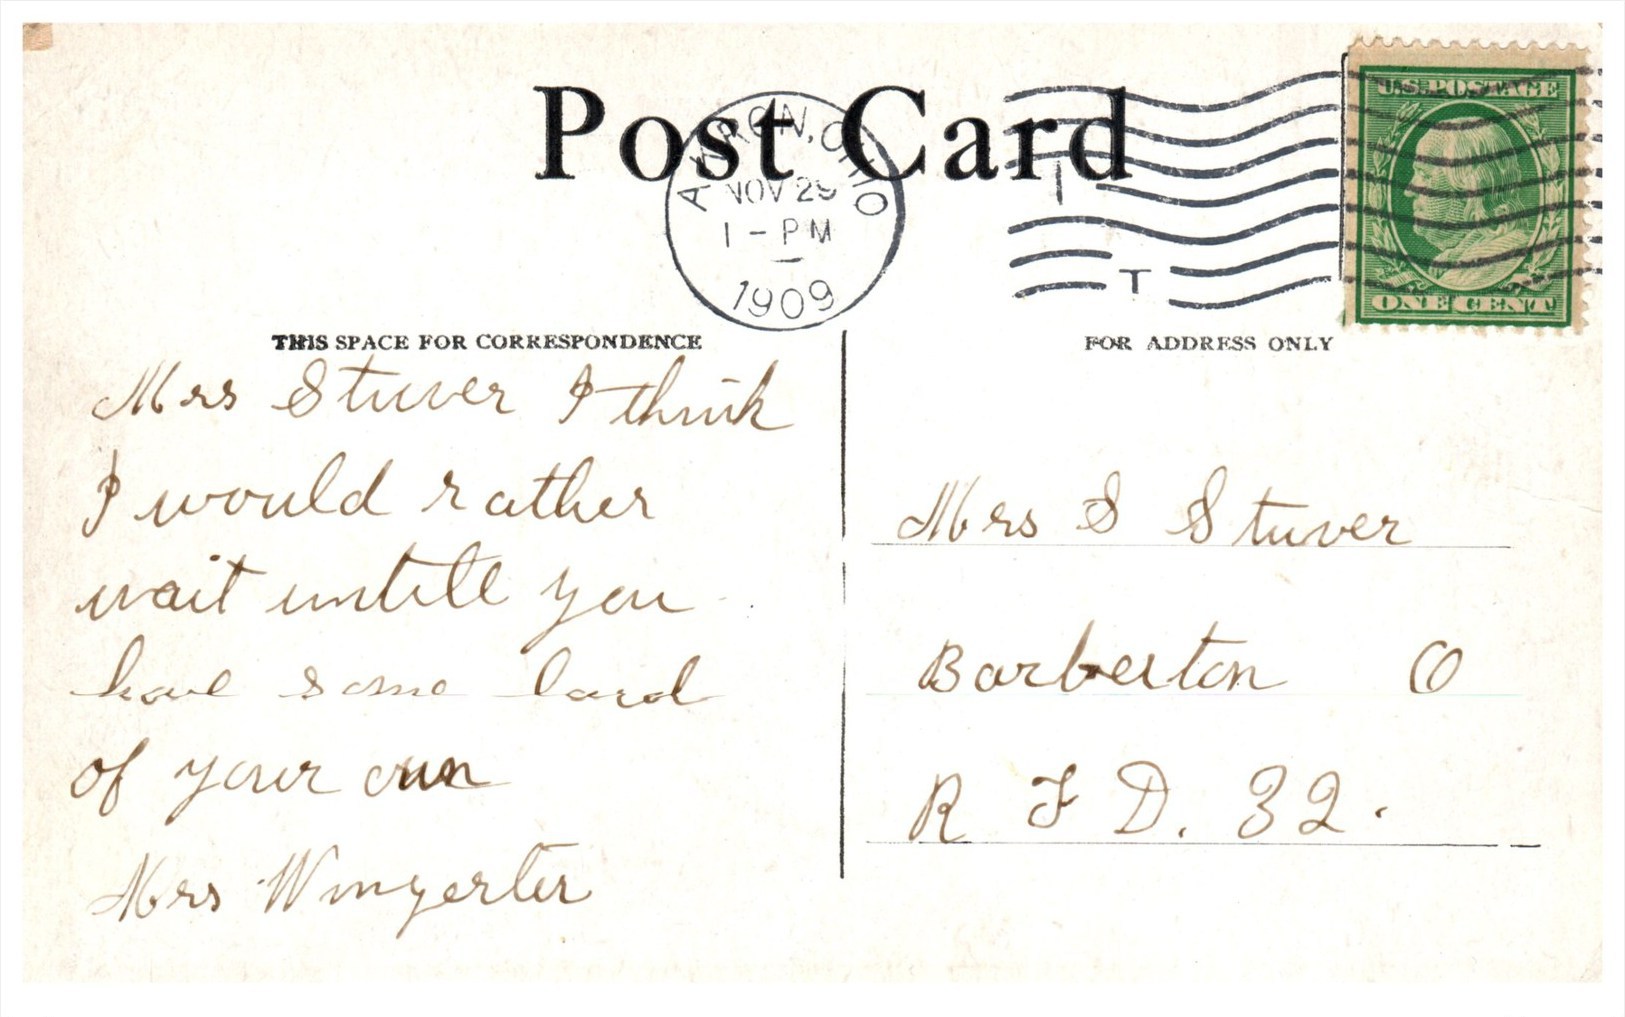 Post Card
AKRON, OHIO
NOV 29
1 - PM
1909
T
U.S. POSTAGE
ONE CENT
THIS SPACE FOR CORRESPONDENCE
Mrs Stuver I think
I would rather
wait untill you
have some lard
of your own
Mrs Wingerter
FOR ADDRESS ONLY
Mrs S Stuver
Barberton O
R F D. 32.